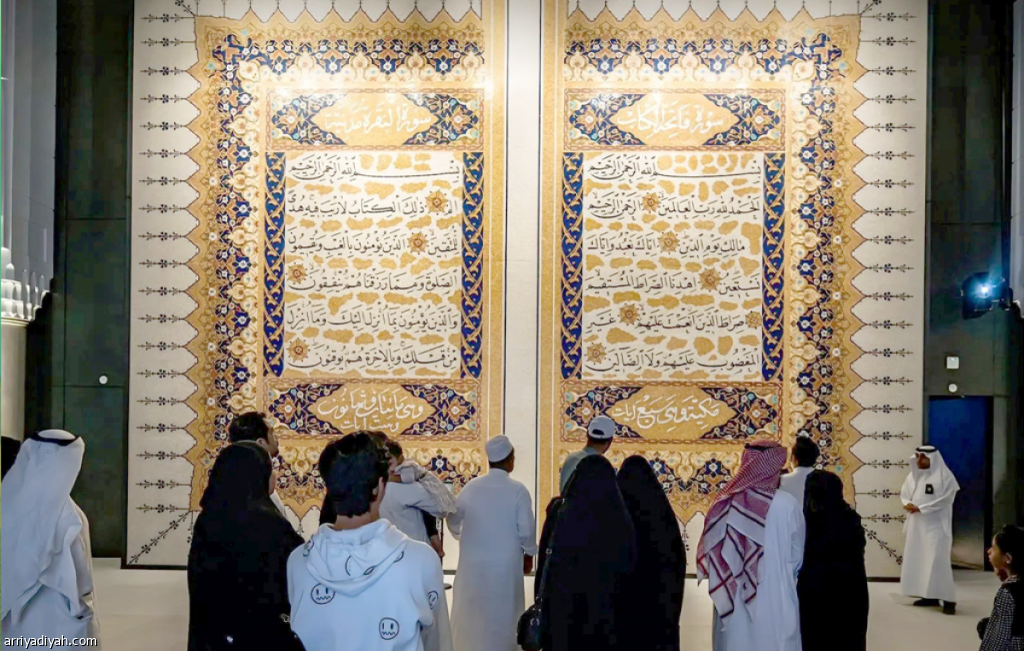 سورة فاتحة الكتاب
بسم الله الرحمن الرحيم
الحمد لله رب العالمين الرحمن الرحيم
مالك يوم الدين اياك نعبد واياك
نستعين اهدنا الصراط المستقيم
صراط الذين انعمت عليهم غير
المغضوب عليهم ولا الضالين
مكية وهي سبع آيات
سورة البقرة مدنية
بسم الله الرحمن الرحيم
الم ذلك الكتاب لا ريب فيه هدى
للمتقين الذين يؤمنون بالغيب ويقيمون
الصلوة ومما رزقناهم ينفقون
والذين يؤمنون بما انزل اليك وما انزل
من قبلك وبالاخرة هم يوقنون
وهي مائتان وثمانون
وست آيات
arriyadiyah.com